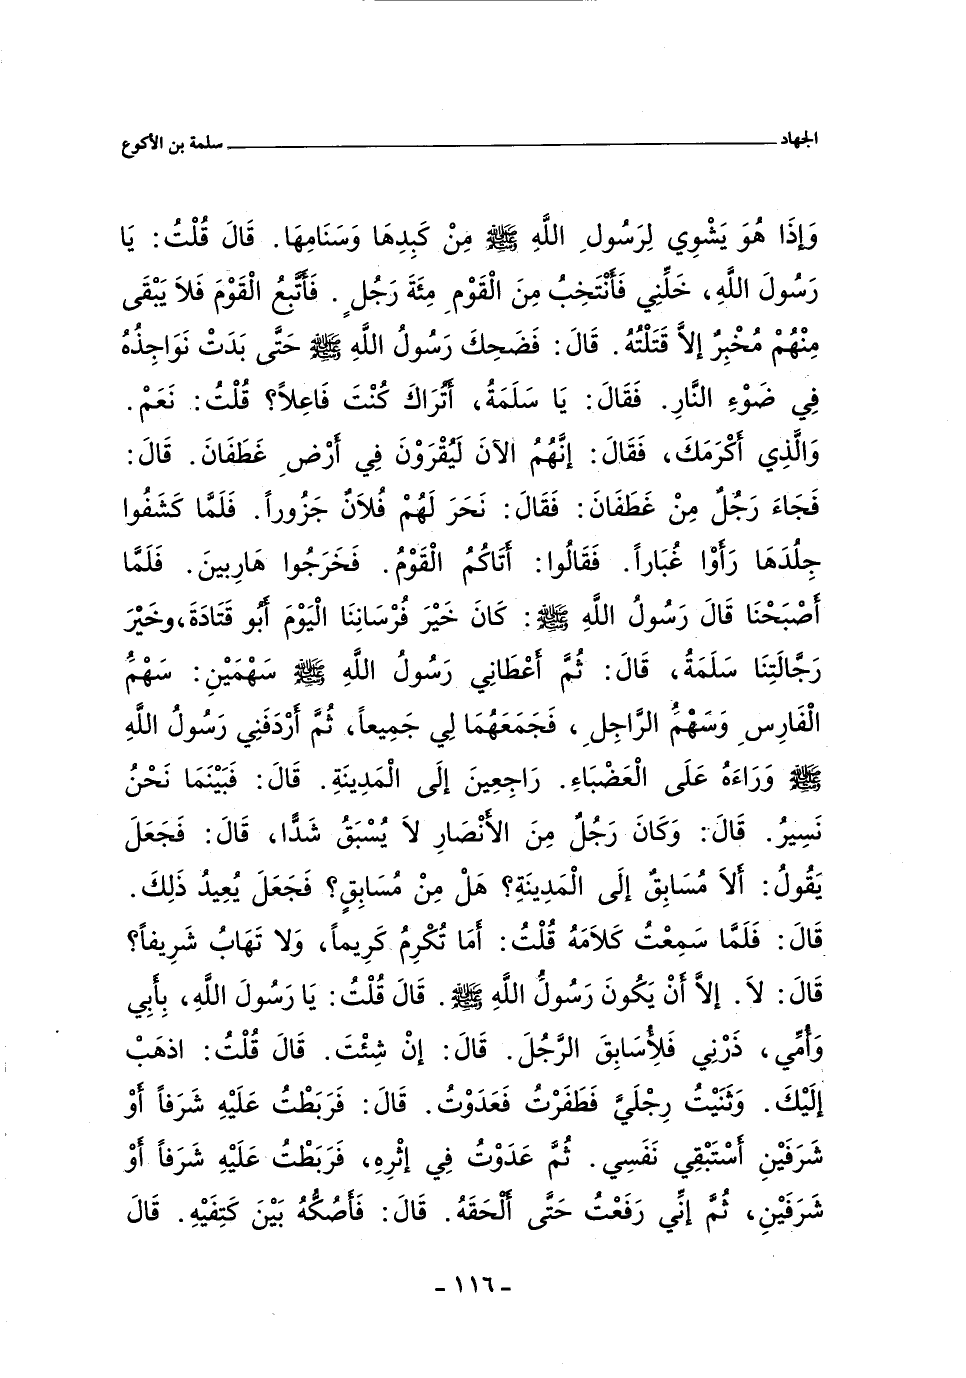 الجهاد سلمة بن الأكوع
وَإِذَا هُوَ يَشْوِي لِرَسُولِ اللَّهِ ﷺ مِنْ كَبِدِهَا وَسَنَامِهَا. قَالَ قُلْتُ: يَا
رَسُولَ اللَّهِ، خَلِّنِي فَأَنْتَخِبُ مِنَ الْقَوْمِ مِئَةَ رَجُلٍ. فَأَتَّبِعُ الْقَوْمَ فَلاَ يَبْقَى
مِنْهُمْ مُخْبِرٌ إِلاَّ قَتَلْتُهُ. قَالَ: فَضَحِكَ رَسُولُ اللَّهِ ﷺ حَتَّى بَدَتْ نَوَاجِذُهُ
فِي ضَوْءِ النَّارِ. فَقَالَ: يَا سَلَمَةُ، أَتُرَاكَ كُنْتَ فَاعِلاً؟ قُلْتُ: نَعَمْ.
وَالَّذِي أَكْرَمَكَ، فَقَالَ: إِنَّهُمُ الآنَ لَيُقْرَوْنَ فِي أَرْضِ غَطَفَانَ. قَالَ:
فَجَاءَ رَجُلٌ مِنْ غَطَفَانَ: فَقَالَ: نَحَرَ لَهُمْ فُلاَنٌ جَزُوراً. فَلَمَّا كَشَفُوا
جِلْدَهَا رَأَوْا غُبَاراً. فَقَالُوا: أَتَاكُمُ الْقَوْمُ. فَخَرَجُوا هَارِبِينَ. فَلَمَّا
أَصْبَحْنَا قَالَ رَسُولُ اللَّهِ ﷺ: كَانَ خَيْرَ فُرْسَانِنَا الْيَوْمَ أَبُو قَتَادَةَ، وخَيْرَ
رَجَّالَتِنَا سَلَمَةُ، قَالَ: ثُمَّ أَعْطَانِي رَسُولُ اللَّهِ ﷺ سَهْمَيْنِ: سَهْمُ
الْفَارِسِ وَسَهْمُ الرَّاجِلِ، فَجَمَعَهُمَا لِي جَمِيعاً، ثُمَّ أَرْدَفَنِي رَسُولُ اللَّهِ
ﷺ وَرَاءَهُ عَلَى الْعَضْبَاءِ. رَاجِعِينَ إِلَى الْمَدِينَةِ. قَالَ: فَبَيْنَمَا نَحْنُ
نَسِيرُ. قَالَ: وَكَانَ رَجُلٌ مِنَ الأَنْصَارِ لاَ يُسْبَقُ شَدًّا، قَالَ: فَجَعَلَ
يَقُولُ: أَلاَ مُسَابِقٌ إِلَى الْمَدِينَةِ؟ هَلْ مِنْ مُسَابِقٍ؟ فَجَعَلَ يُعِيدُ ذَلِكَ.
قَالَ: فَلَمَّا سَمِعْتُ كَلاَمَهُ قُلْتُ: أَمَا تُكْرِمُ كَرِيماً، وَلا تَهَابُ شَرِيفاً؟
قَالَ: لاَ. إِلاَّ أَنْ يَكُونَ رَسُولُ اللَّهِ ﷺ. قَالَ قُلْتُ: يَا رَسُولَ اللَّهِ، بِأَبِي
وَأُمِّي، ذَرْنِي فَلِأُسَابِقَ الرَّجُلَ. قَالَ: إِنْ شِئْتَ. قَالَ قُلْتُ: اذهَبْ
إِلَيْكَ. وَثَنَيْتُ رِجْلَيَّ فَطَفَرْتُ فَعَدَوْتُ. قَالَ: فَرَبَطْتُ عَلَيْهِ شَرَفاً أَوْ
شَرَفَيْنِ أَسْتَبْقِي نَفَسِي. ثُمَّ عَدَوْتُ فِي إِثْرِهِ، فَرَبَطْتُ عَلَيْهِ شَرَفاً أَوْ
شَرَفَيْنِ، ثُمَّ إِنِّي رَفَعْتُ حَتَّى أَلْحَقَهُ. قَالَ: فَأَصُكُّهُ بَيْنَ كَتِفَيْهِ. قَالَ
- ١١٦ -